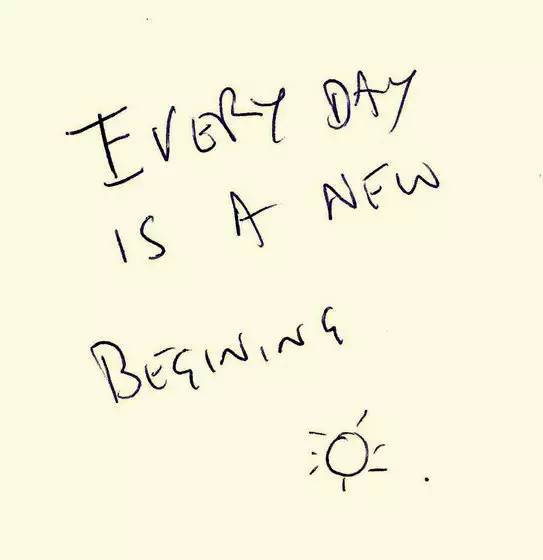 EVERY DAY
IS A NEW
BEGINING